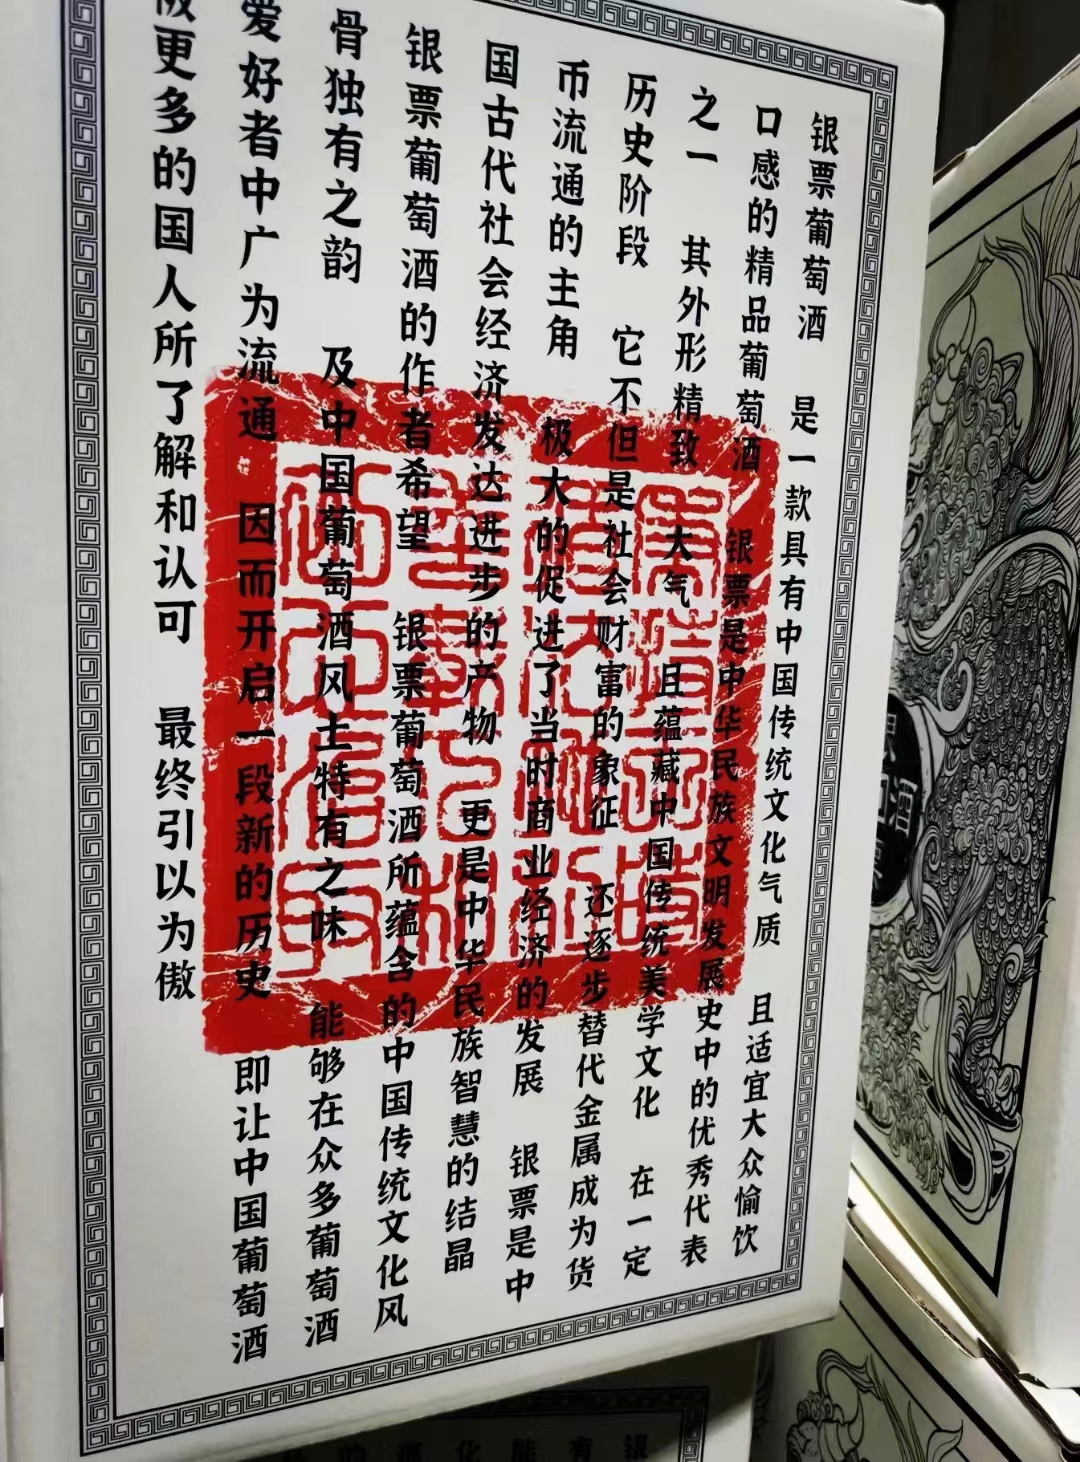 银票葡萄酒 是一款具有中国传统文化气质 且适宜大众愉饮
口感的精品葡萄酒 银票是中华民族文明发展史中的优秀代表
之一 其外形精致 大气 且蕴藏中国传统美学文化 在一定
历史阶段 它不但是社会财富的象征 还逐步替代金属成为货
币流通的主角 极大的促进了当时商业经济的发展 银票是中
国古代社会经济发达进步的产物 更是中华民族智慧的结晶
银票葡萄酒的作者希望 银票葡萄酒所蕴含的中国传统文化风
骨独有之韵 及中国葡萄酒风土特有之味 能够在众多葡萄酒
爱好者中广为流通 因而开启一段新的历史 即让中国葡萄酒
被更多的国人所了解和认可 最终引以为傲
酒